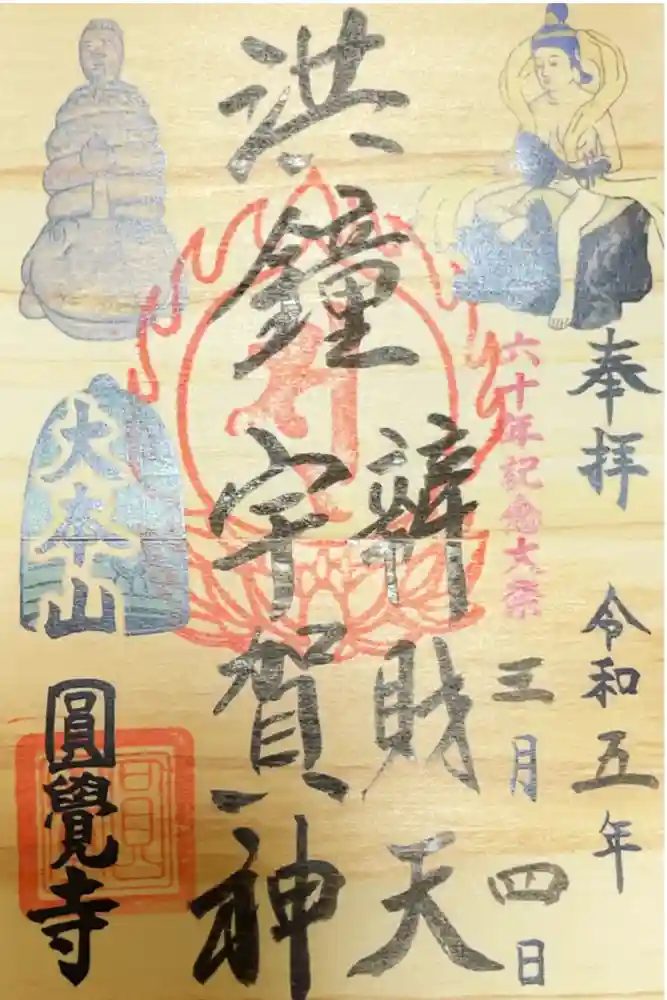 奉拝
令和五年
三月四日
六十年記念大祭
洪鐘
辨財天
宇賀神
大本山
圓覺寺